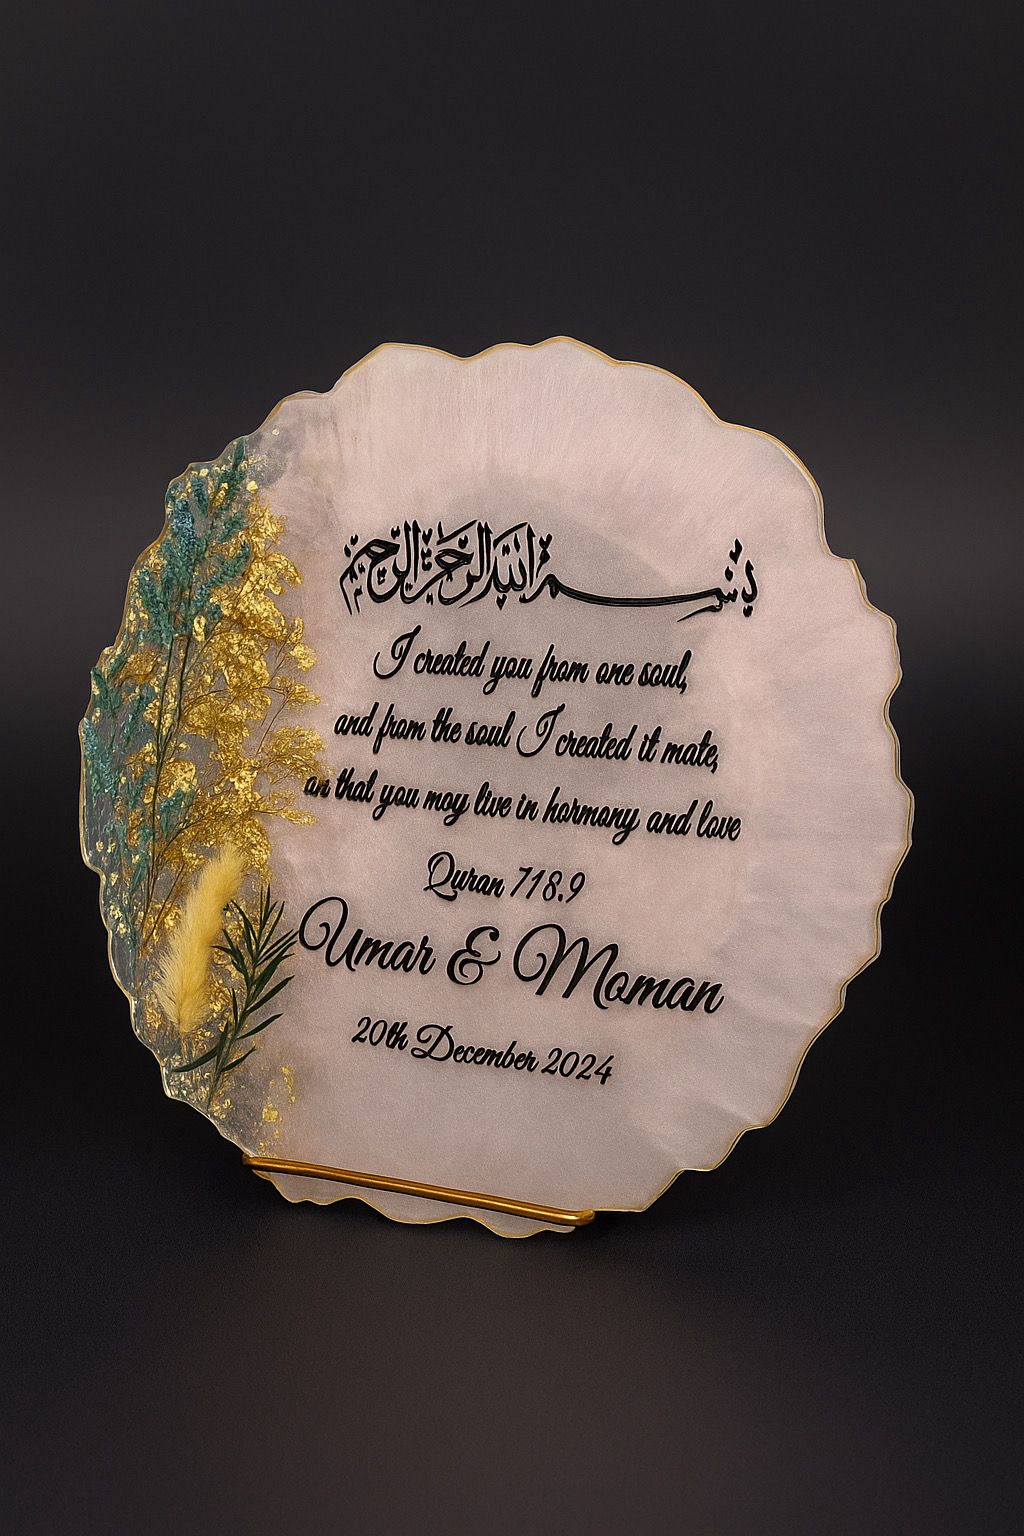 بسم الله الرحمن الرحيم
I created you from one soul,
and from the soul I created it mate,
an that you moy live in hormony and love
Quran 718.9
Umar & Moman
20th December 2024